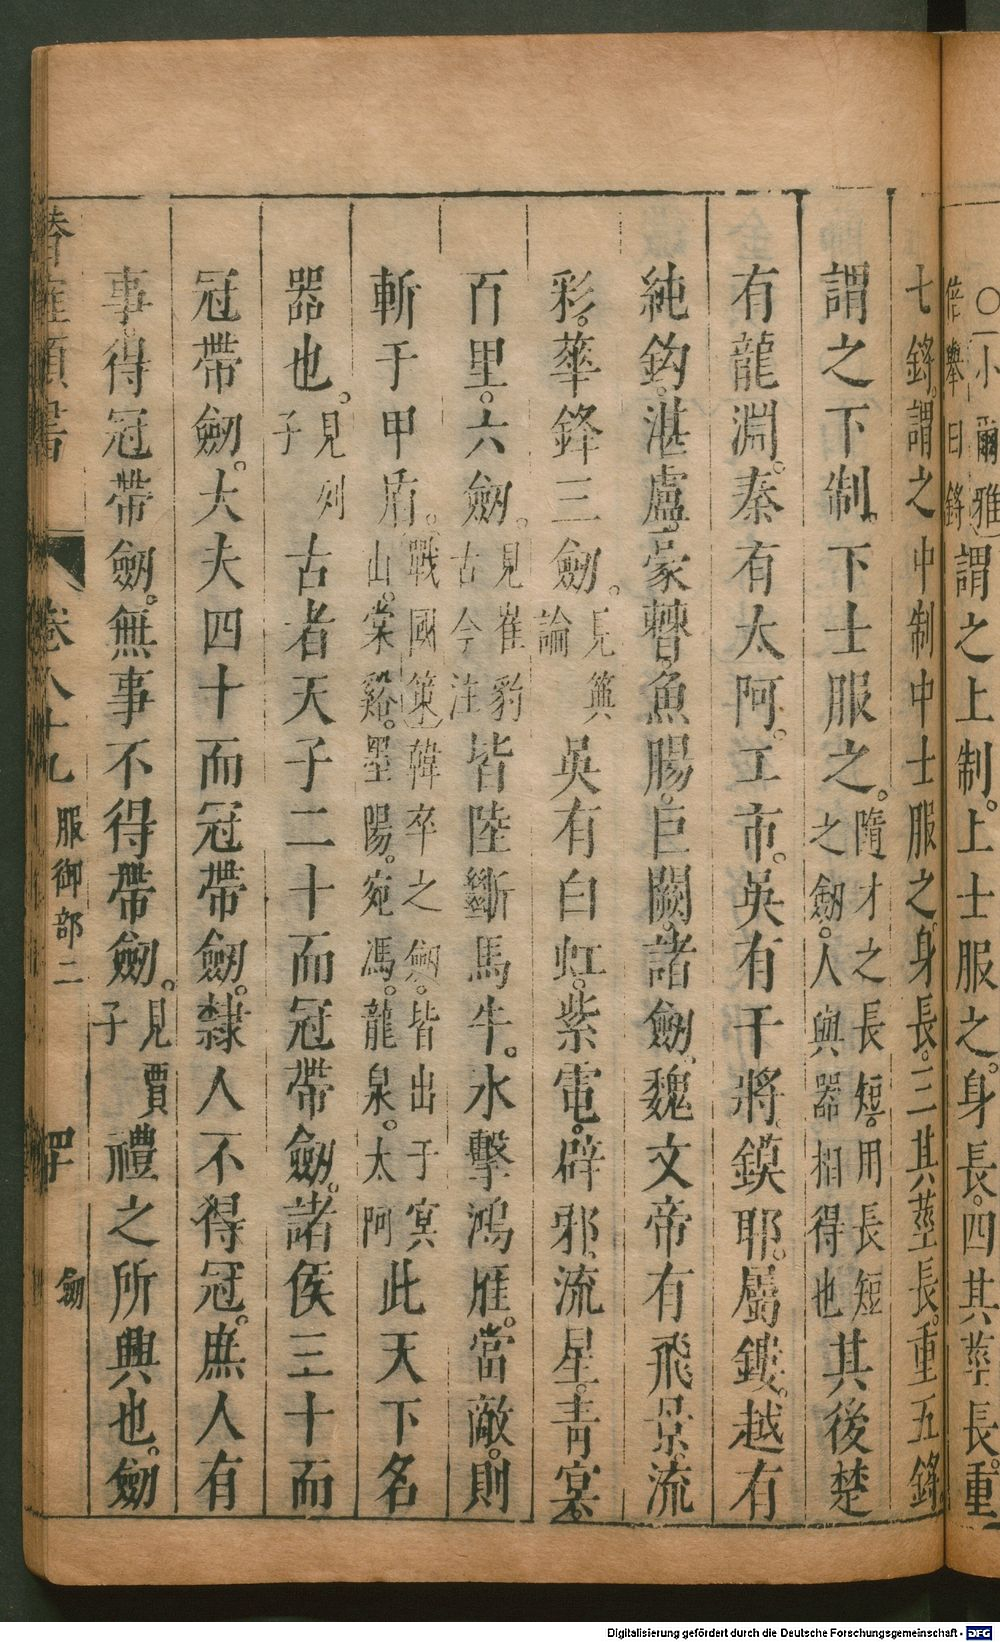 ○小爾雅
倍舉曰鋝
謂之上制。上士服之。身長。四其莖長。重
七鋝。謂之中制中士服之。身長。三其莖長。重五鋝
謂之下制。下士服之。隨才之長短。用長短
之劒。人與器相得也
其後楚
有龍淵。秦有太阿。工市。吳有干將。鏌耶。屬鏤。越有
純鈎。湛盧。豪曹。魚腸。巨闕。諸劒。魏文帝有飛景。流
彩。華鋒三劒。見典
論
吳有白虹。紫電。辟邪。流星。青冥。
百里。六劒。見崔豹
古今注
皆陸斷馬牛。水擊鴻雁。當敵。則
斬于甲盾。戰國策韓卒之劒。皆出于冥
山。棠谿。墨陽。宛馮。龍泉。太阿
此天下名
器也。見列
子
古者天子二十而冠帶劒。諸侯三十而
冠帶劒。大夫四十而冠帶劒。隸人不得冠。庶人有
事。得冠帶劒。無事不得帶劒。見賈
子
禮之所興也。劒
潛確類書 卷八十九 服御部二 四十 劒
Digitalisierung gefördert durch die Deutsche Forschungsgemeinschaft - DFG